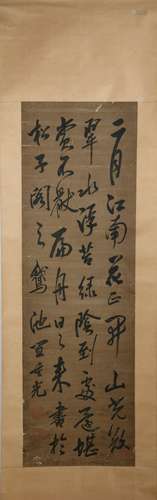 二月江南花正開山光欲
翠水浮苔緑陰到處還堪
賞不厭扁舟日日來書於
松子閣之鵞池笪重光